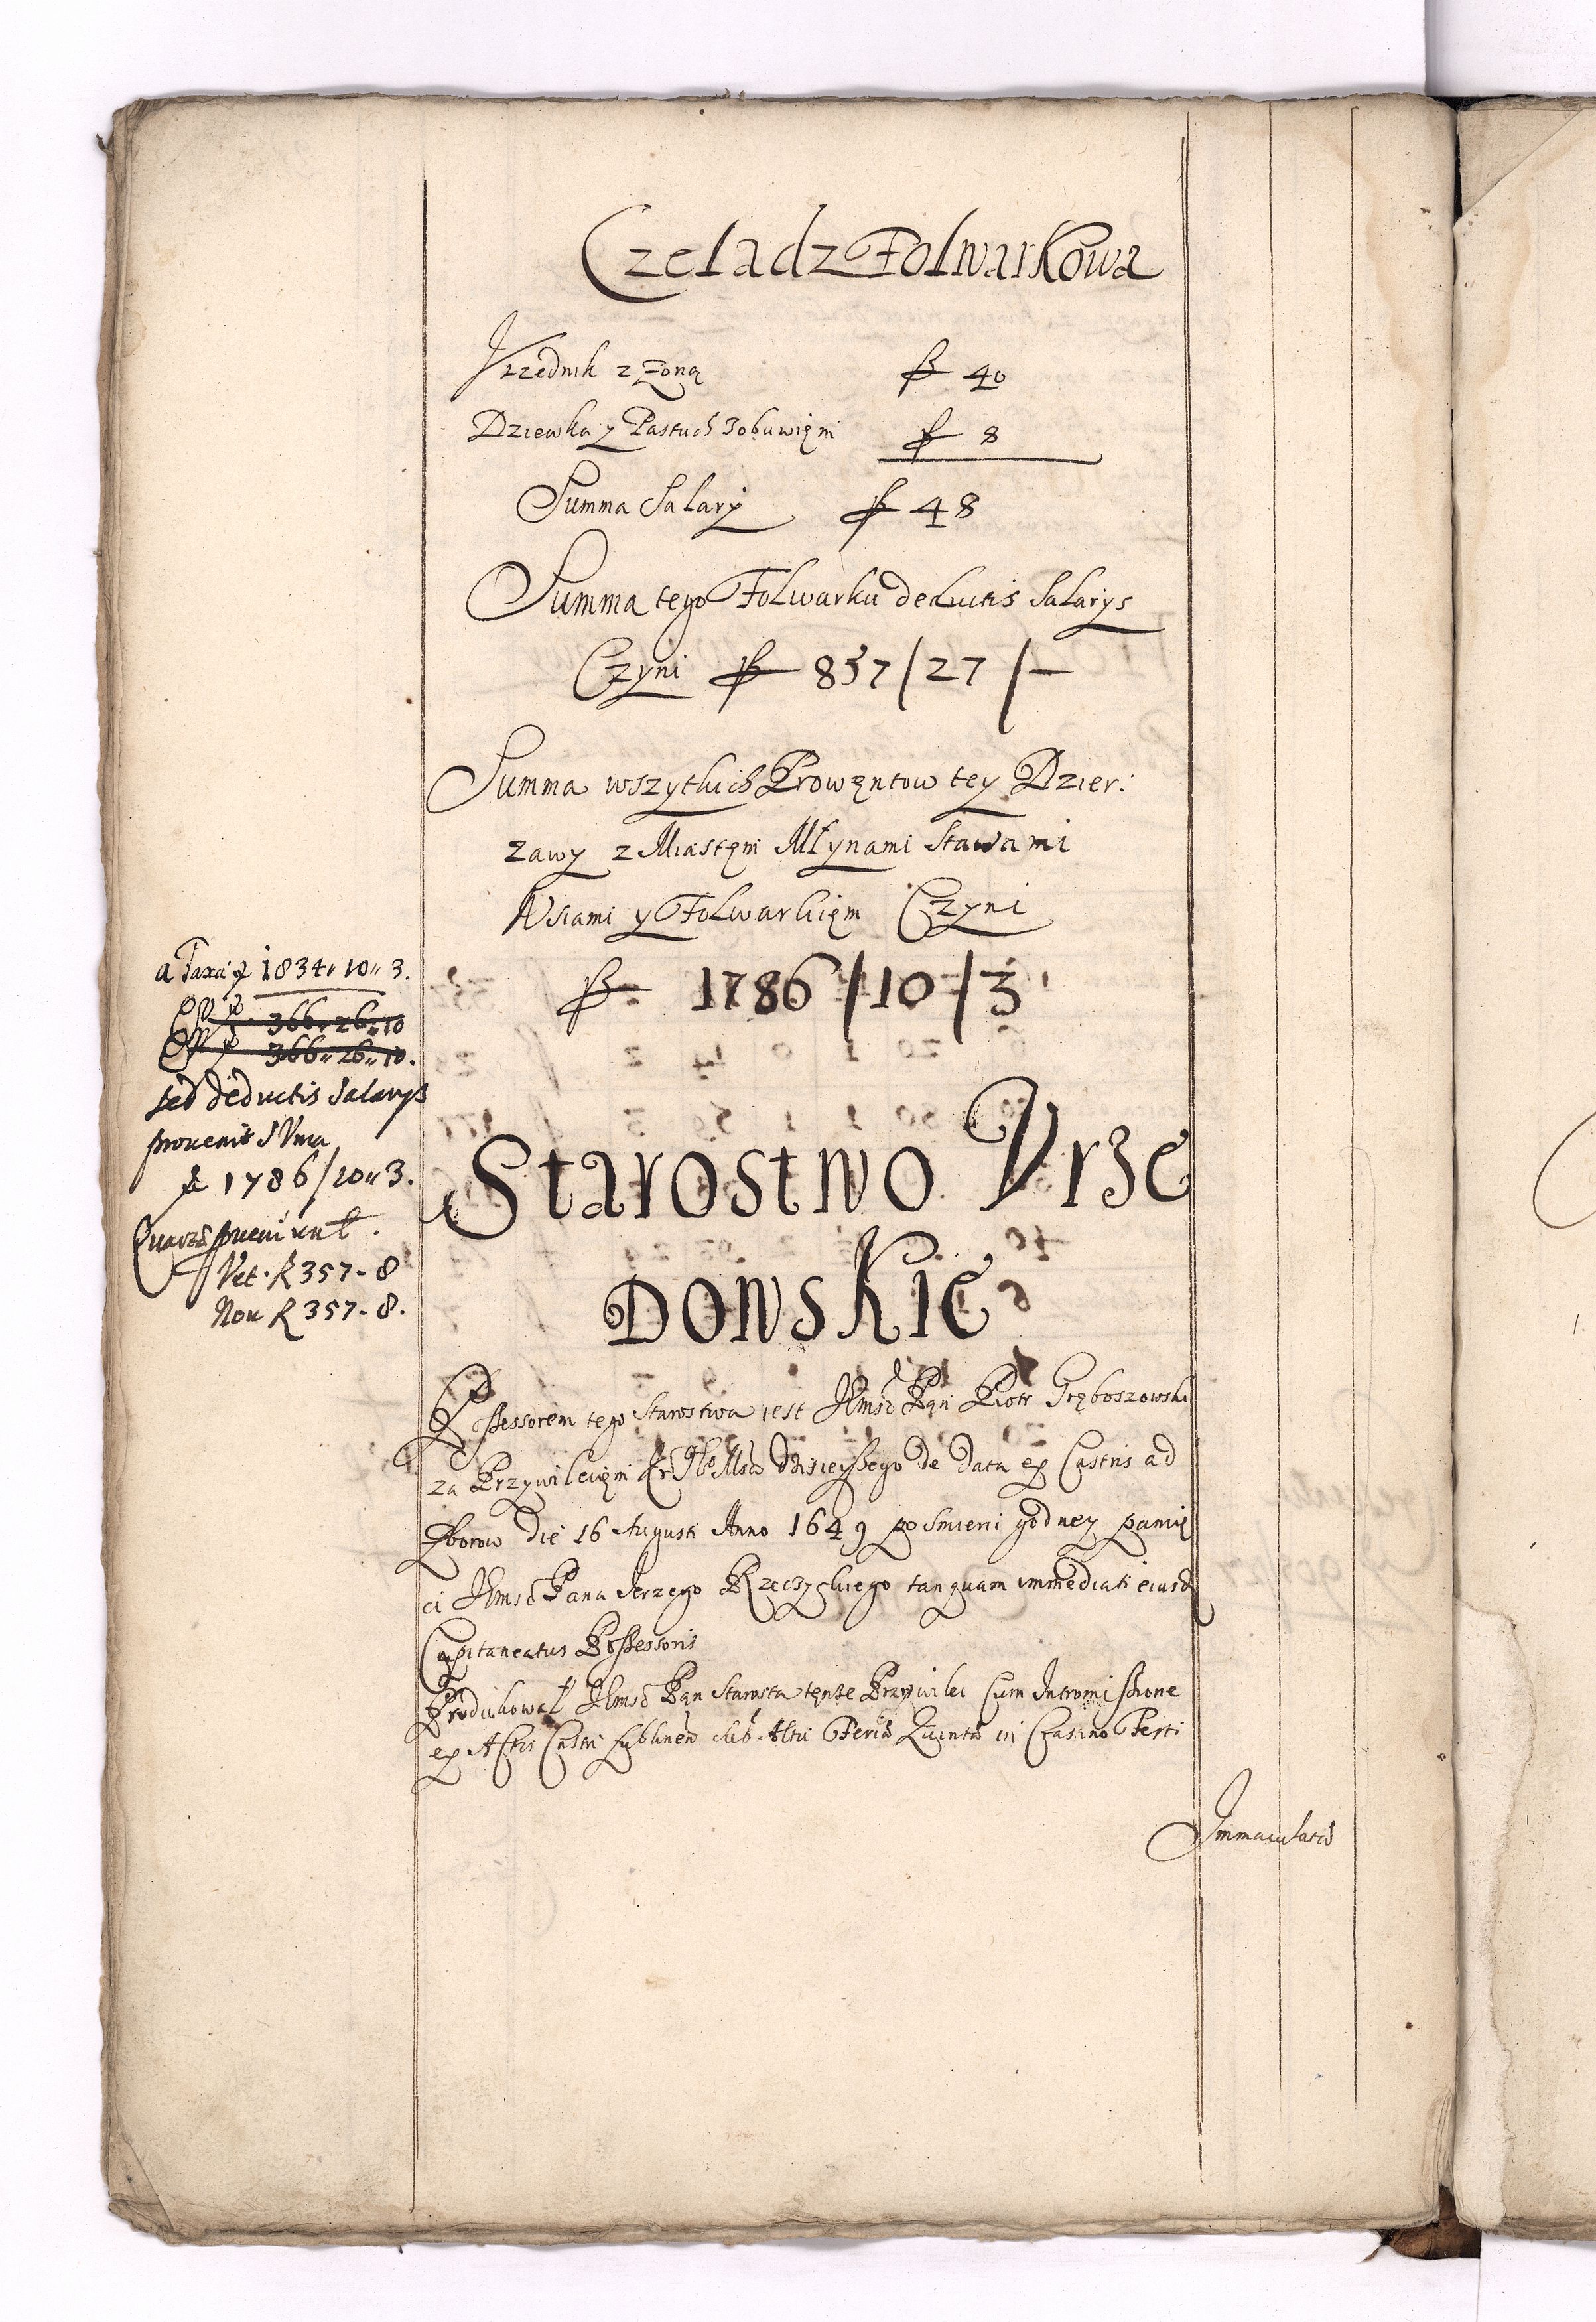 Czeladz Folwarkowa
Vrzednik z Zoną fl 40
Dziewka y Pastuch zobuwięm fl 8
Summa Salary fl 48
Summa tego Folwarku deductis Salarys
Czyni fl 857/27/—
Summa wszytkich Prowęntow tey Dzier:
zawy z Miastęm Młynami Stawami
Wsiami y Folwarkięm Czyni
fl 1786/10/3
a Taxa fl 1834„10„3.
366„26„10
366„26„10.
sed deductis Salarys
prouenit sVma
fl 1786/10„3.
Quartæ pueniunt.
Vet. fl 357-8
Nou fl 357-8.
Starostwo Vrze
dowskie
Possessorem tego Starostwa iest Jmsć Pąn Piotr Gręboszowski
za Przywileięm Kr Msci dzisieyszego de data ex Castris ad
Zborow die 16 Augusti Anno 1649 po smierci godney pamię
ci Jmsć Pana Jerzego Rzeczyckiego tanquam immediati eiusd
Capitaneatus Possessoris
Produkował Jmsć Pąn Starosta tęnze Przywilei cum Intromissione
ex Actis Castri Lublinen sub Actu Feria Quinta in Crastino Festi
Immaculatæ